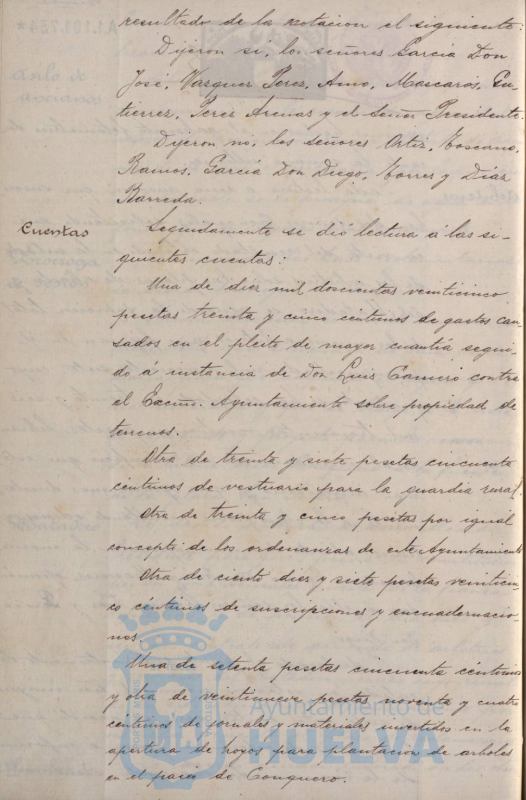 resultado de la votacion el siguiente:
Dijeron si, los señores García Don
José, Vazquez Perez, Amo, Mascarós, Gu-
tierrez, Perez Arenas y el Señor Presidente.
Dijeron no, los señores Ortiz, Toscano,
Ramos, García Don Diego, Torres y Diaz
Barreda.
Cuentas
Seguidamente se dió lectura á las si-
guientes cuentas:
Una de diez mil doscientas veinticinco
pesetas treinta y cinco centimos de gastos cau-
sados en el pleito de mayor cuantiá segui-
do á instancia de Don Luis Gamero contra
el Excmo. Ayuntamiento sobre propiedad de
terrenos.
Otra de treinta y siete pesetas cincuenta
céntimos de vestuario para la guardia rural.
Otra de treinta y cinco pesetas por igual
concepto de los ordenanzas de este Ayuntamiento
Otra de ciento diez y siete pesetas veinticin-
co céntimos de suscripciones y encuadernacio-
nes.
Una de setenta pesetas cincuenta céntimos
y otra de veintinueve pesetas noventa y cuatro
céntimos de jornales y materiales invertidos en la
apertura de hoyos para plantacion de arboles
en el paseo de Conquero.
Ayuntamiento de
HUELVA